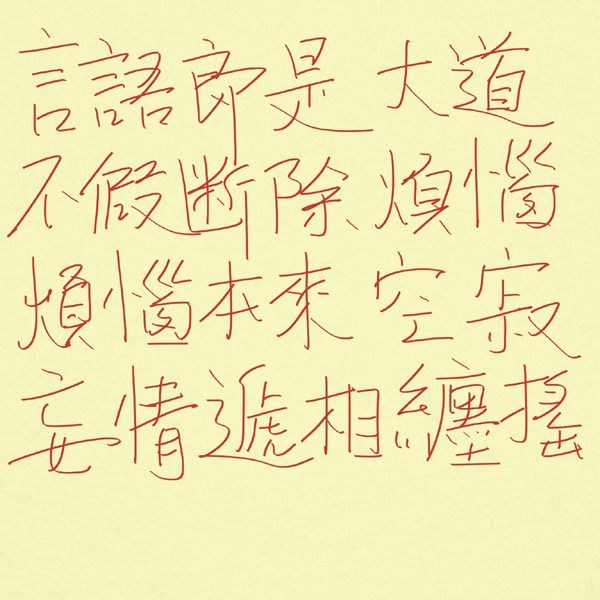 言語即是大道
不假断除煩惱
煩惱本來空寂
妄情遞相纏搖